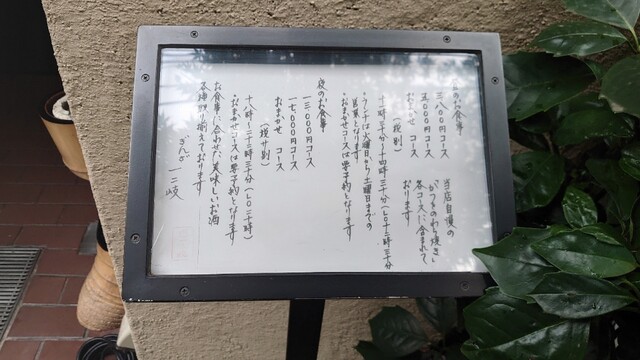 昼のお食事
三、八〇〇円コース
五、〇〇〇円コース
おまかせ コース
(税別)
十一時三十分〜十四時三十分(L.O十三時三十分)
・ランチは火曜日から土曜日までの
営業となります
・おまかせコースは要予約となります
当店自慢の
かつおのわら焼き
各コースに含まれて
おります
夜のお食事
一三、〇〇〇円コース
一七、〇〇〇円コース
おまかせ コース
(税サ別)
十八時〜二十二時三十分(L.O二十時)
・おまかせコースは要予約となります
お食事に合わせた美味しいお酒
各種取り揃えております
ぎんざ 一二岐